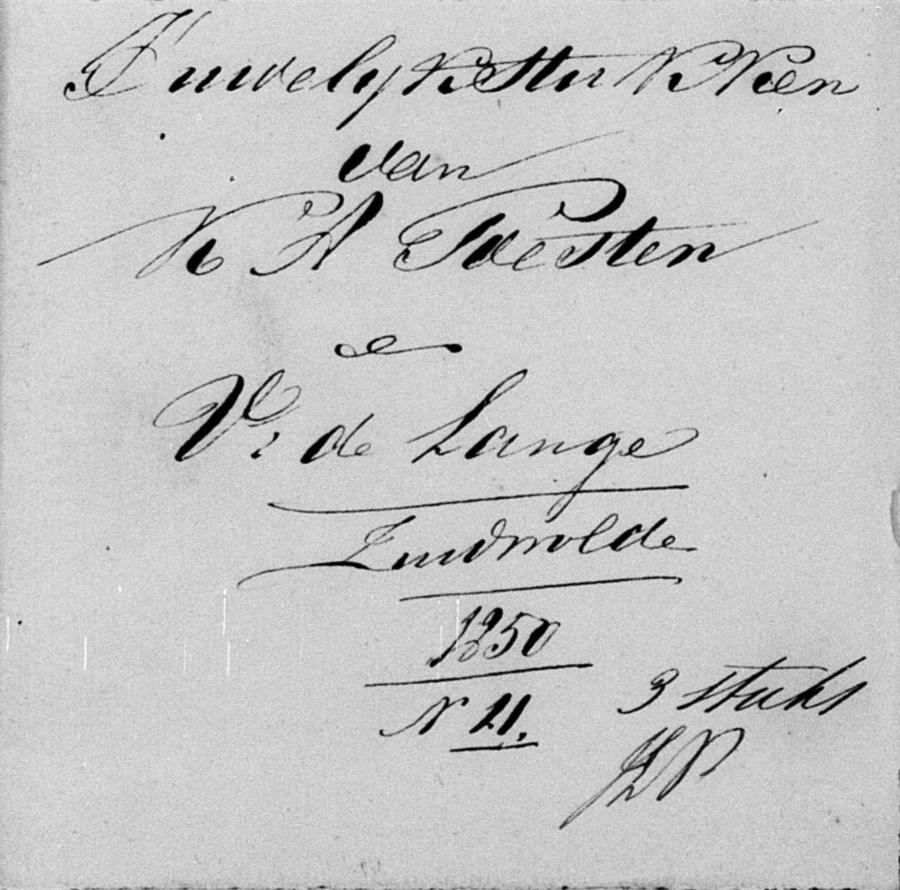 Huwelykstukken
van
K H Toesten
e
V. de Lange
Zuidwolde
1850
N 21.
3 stuks